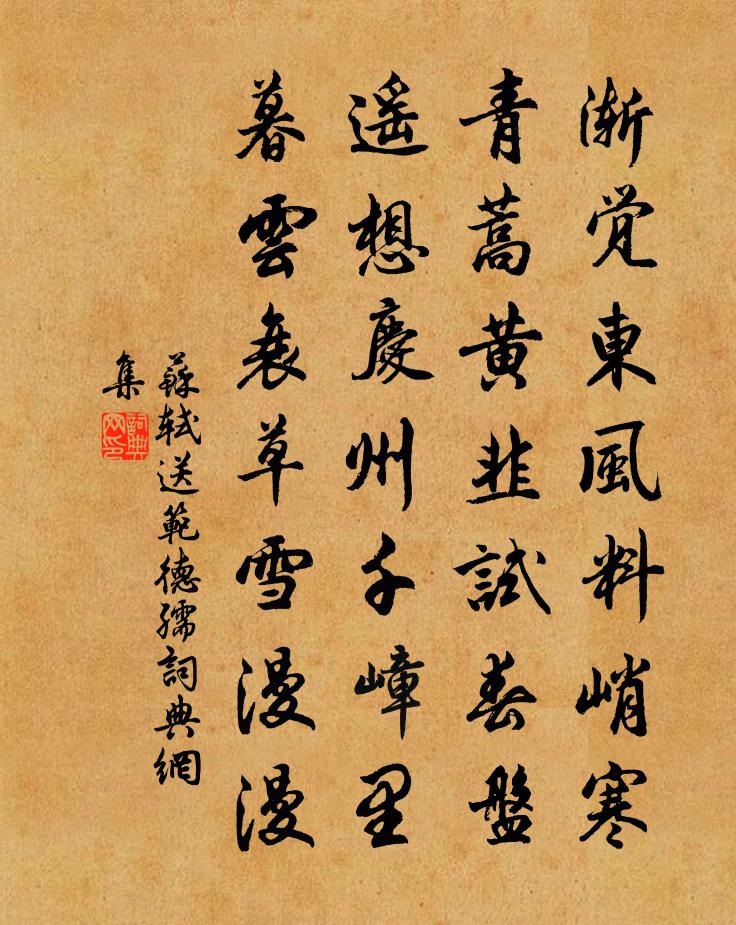 漸觉東風料峭寒
青蒿黃韭試春盤
遥想慶州千嶂里
暮雲衰草雪漫漫
蘇軾送範德孺詞典網
集
詞典
网印